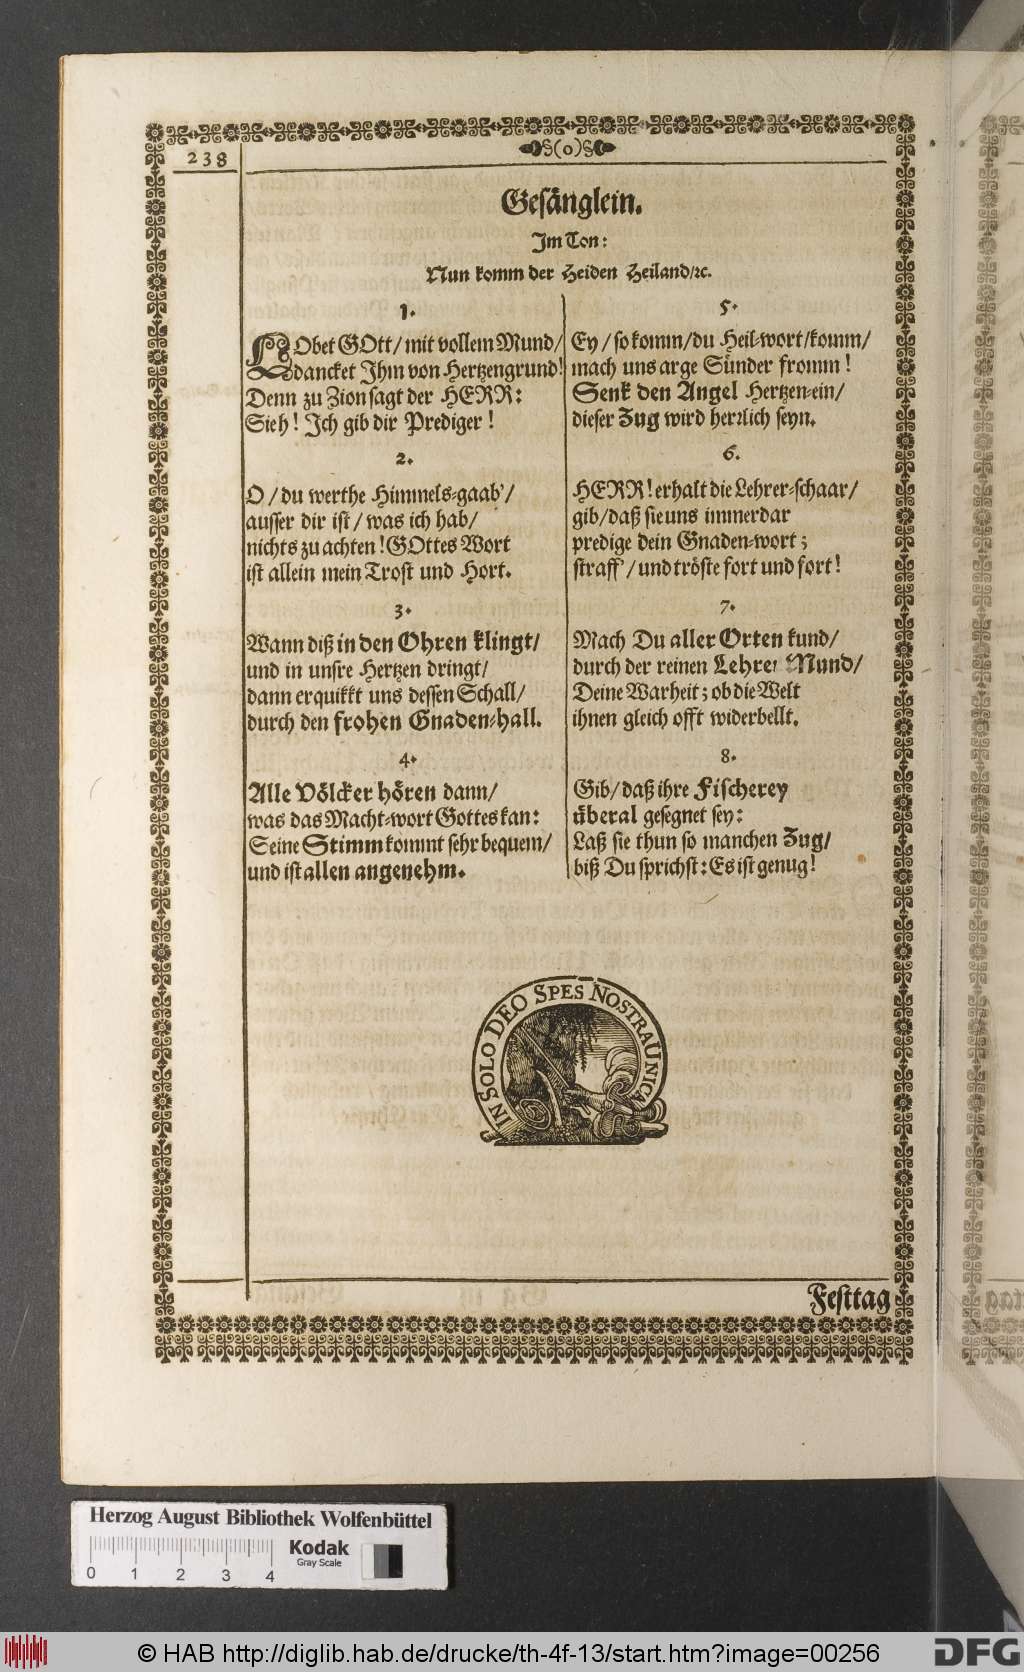 238
§(o)§
Gesänglein.
Im Ton:
Nun komm der Heiden Heiland/ꝛc.
1.
LObet GOtt/ mit vollem Mund/
dancket Ihm von Hertzengrund!
Denn zu Zion sagt der HERR:
Sieh! Ich gib dir Prediger!
2.
O/ du werthe Himmels-gaab'/
ausser dir ist/ was ich hab/
nichts zu achten! GOttes Wort
ist allein mein Trost und Hort.
3.
Wann diß in den Ohren klingt/
und in unsre Hertzen dringt/
dann erquikkt uns dessen Schall/
durch den frohen Gnaden-hall.
4.
Alle Völcker hören dann/
was das Macht-wort Gottes kan:
Seine Stimm kommt sehr bequem/
und ist allen angenehm.
5.
Ey/ so komm/ du Heil-wort/ komm/
mach uns arge Sünder fromm!
Senk den Angel Hertzen-ein/
dieser Zug wird herꝛlich seyn.
6.
HERR! erhalt die Lehrer-schaar/
gib/ daß sie uns immerdar
predige dein Gnaden-wort;
straff'/ und tröste fort und fort!
7.
Mach Du aller Orten kund/
durch der reinen Lehrer Mund/
Deine Warheit; ob die Welt
ihnen gleich offt widerbellt.
8.
Gib/ daß ihre Fischerey
überal gesegnet sey:
Laß sie thun so manchen Zug/
biß Du sprichst: Es ist genug!
IN SOLO DEO SPES NOSTRA UNICA
Festtag
Herzog August Bibliothek Wolfenbüttel
0 1 2 3 4
Kodak
Gray Scale
© HAB http://diglib.hab.de/drucke/th-4f-13/start.htm?image=00256
DFG